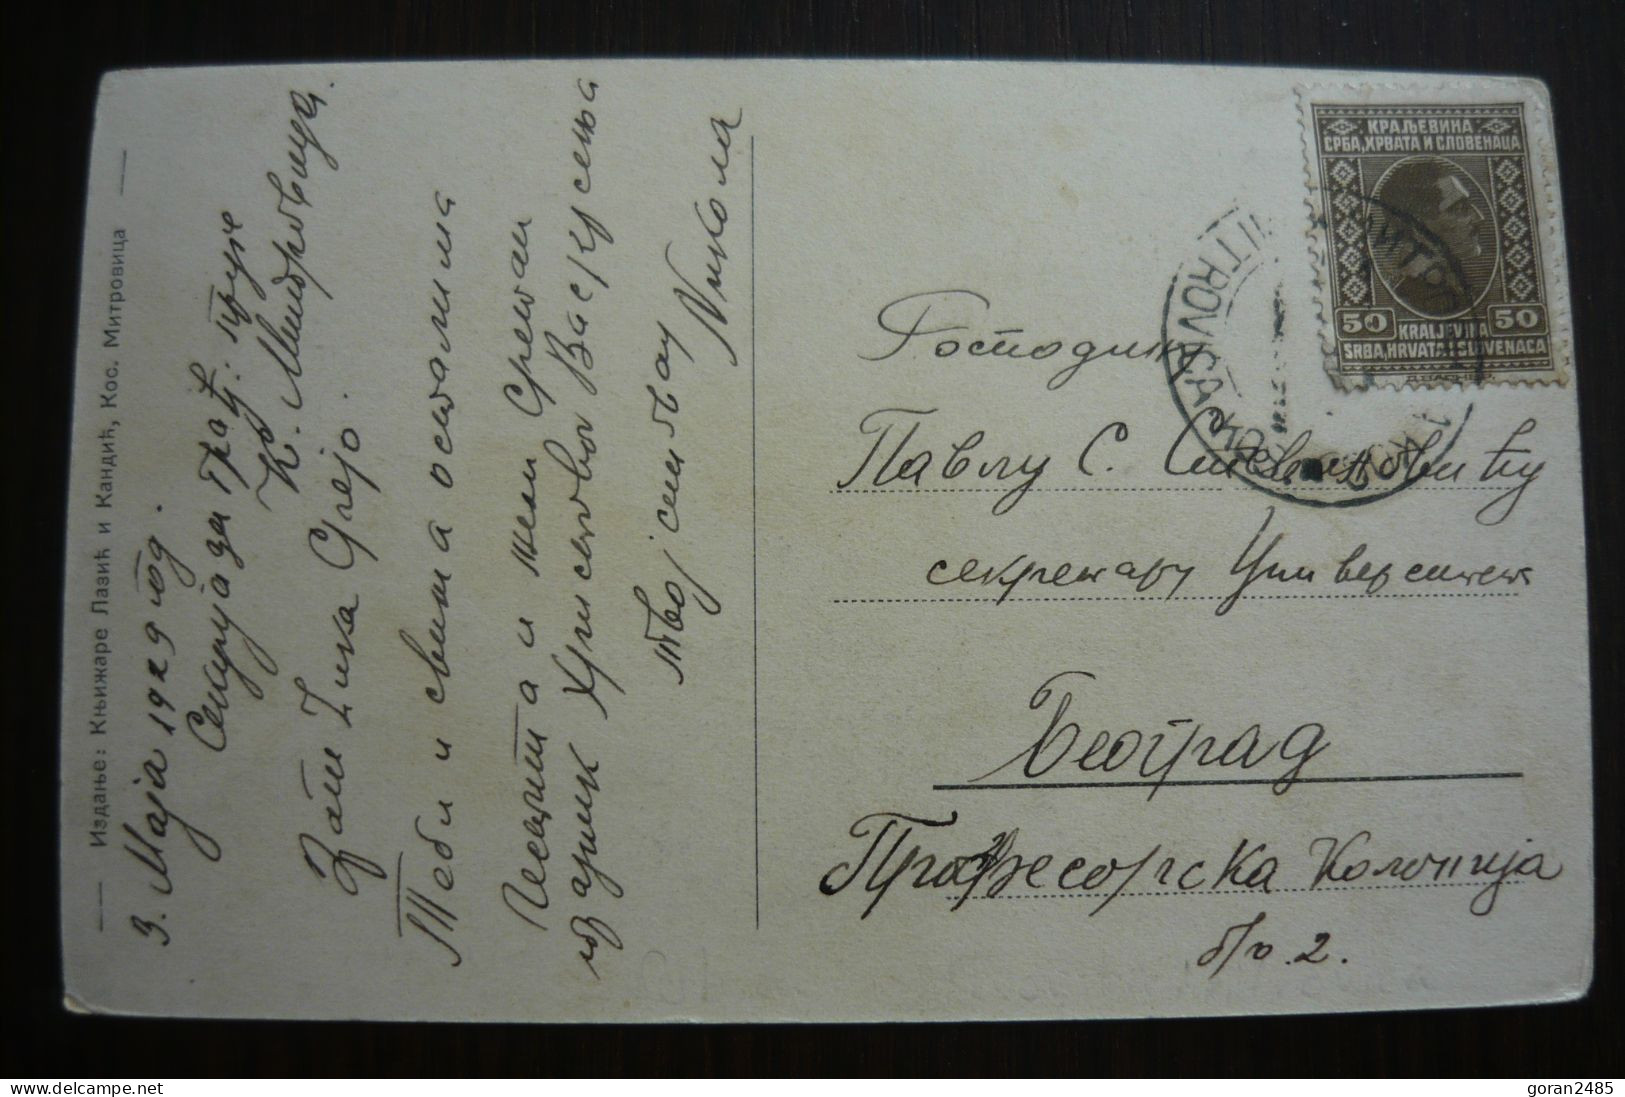 Издање: Књижаре Лазић и Кандић, Кос. Митровица
3. Маја 1929 год.
Секција за грађ: пруге
К. Митровица.
Теби и свима осталима
честита и жели сретан
празник Христовог Васкрсења
твој
Никола
КРАЉЕВИНА
СРБА, ХРВАТА И СЛОВЕНАЦА
50 50
KRALJEVINA
SRBA, HRVATA I SLOVENACA
Господину
Павлу С.
секретару Универзитета
Београд
Професорска Колонија
бр. 2.
delcampe.net
goran2485